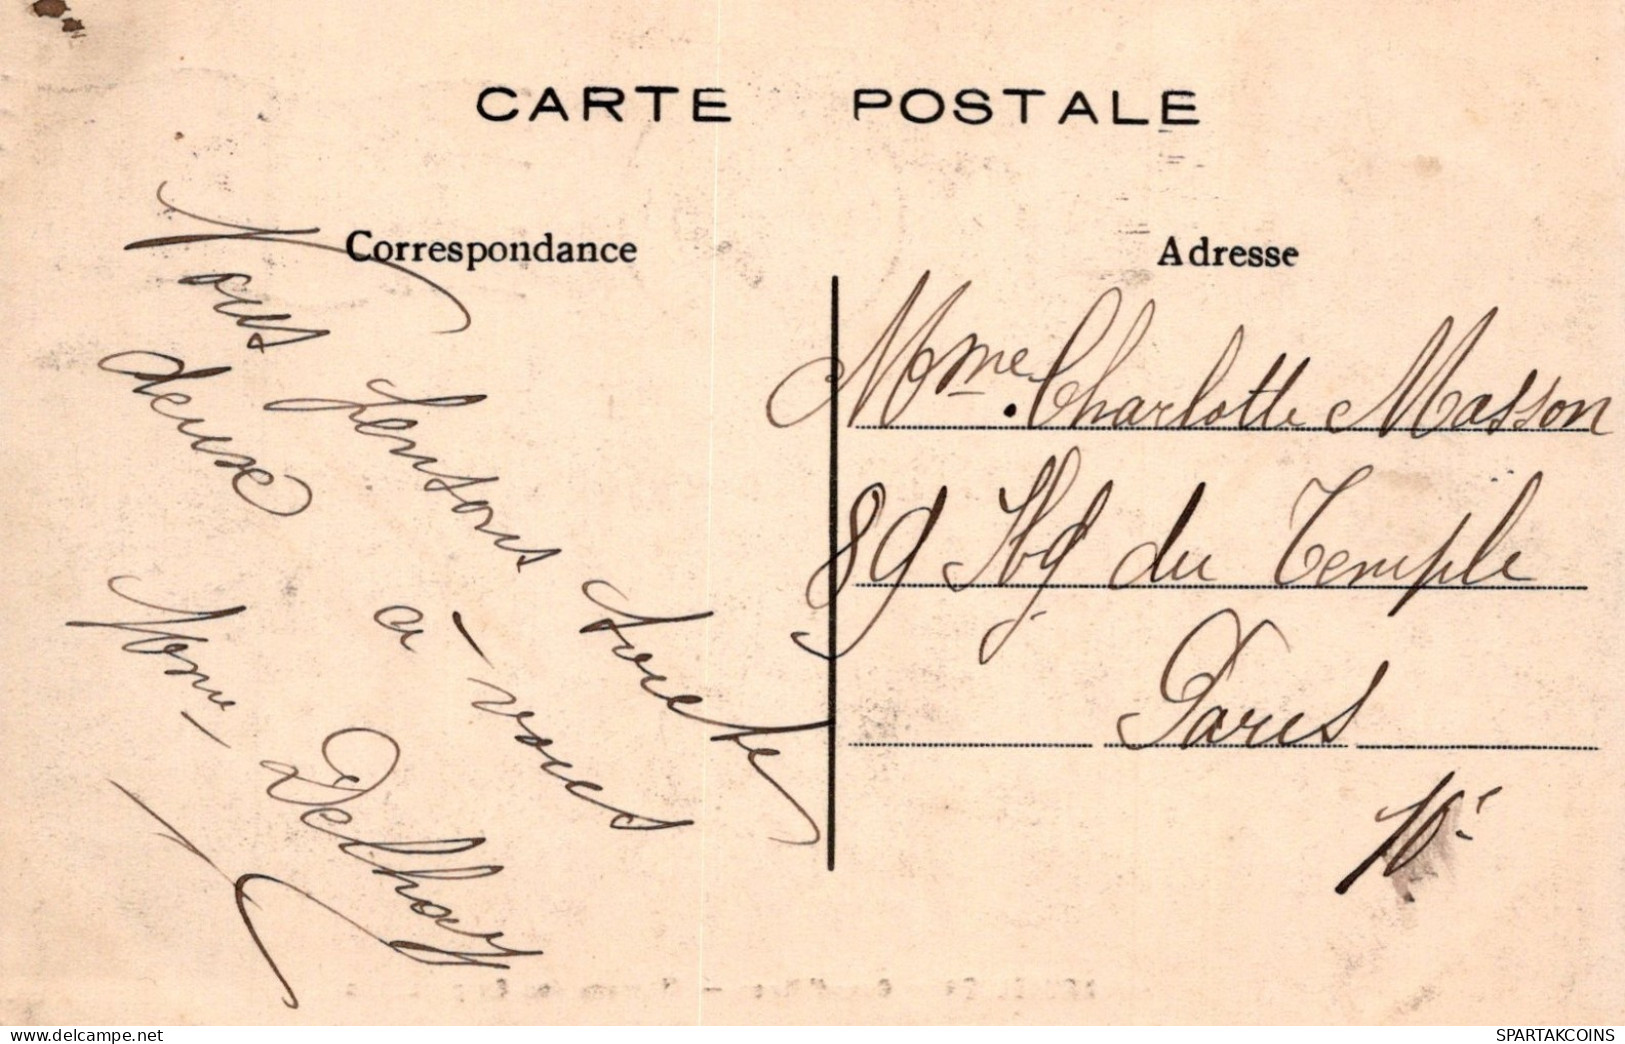 CARTE POSTALE
Correspondance
Nous pensons toutes
deux à - vous
Mme Delhay
Adresse
Mme. Charlotte Masson
89 Fbg du Temple
Paris
10e
www.spartakcoins.com
SPARTAKCOINS